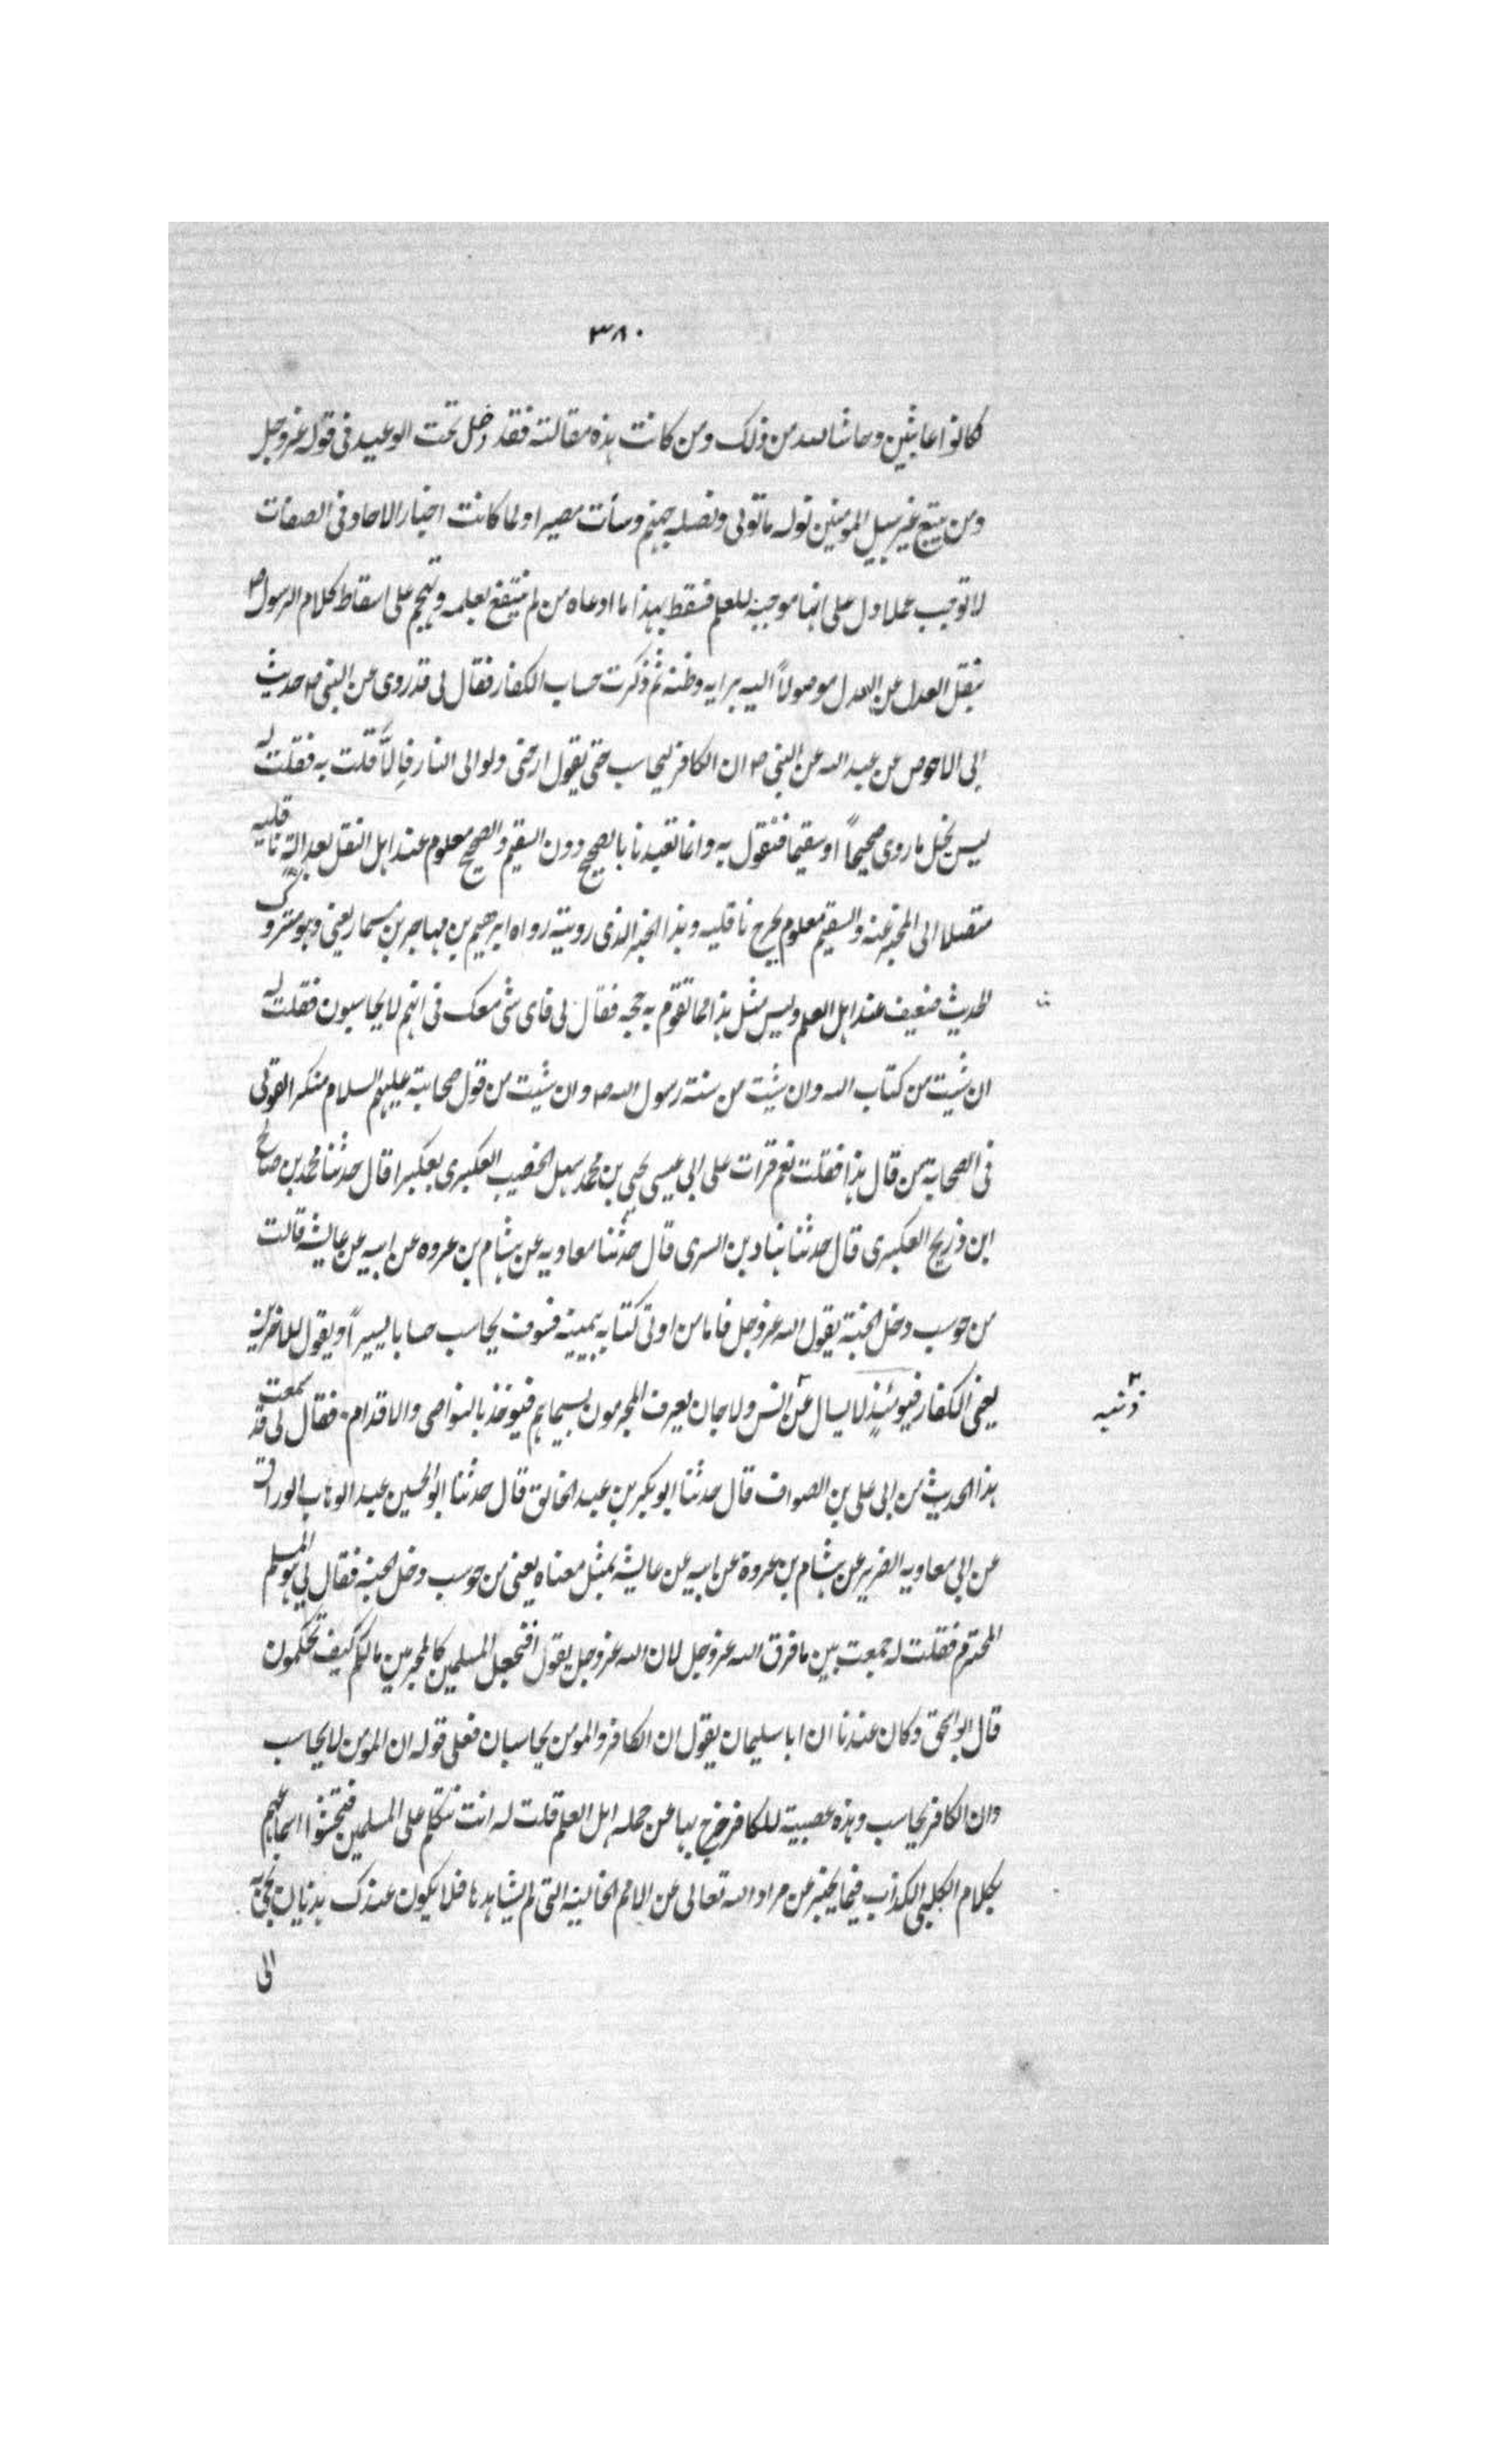 ٣٨٠
كانوا عابثين وحاشا لله من ذلك ومن كانت هذه مقالته فقد دخل تحت الوعيد فى قوله عز وجل
ومن يتبع غير سبيل المومنين نوله ما تولى ونصله جهنم وسأت مصيرا ولما كانت اخبار الاحاد فى الصفات
لا توجب عملا دل على انها موجبة للعلم فسقط بهذا ما ادعاه من لم ينتفع بعلمه وتهجم على اسقاط كلام الرسول ص
بنقل العدل عن العدل موصولاً اليه برايه وظنه ثم ذكرت حساب الكفار فقال لى قد روى عن النبى ص حديث
ابى الاحوص عن عبد الله عن النبى ص ان الكافر ليحاسب حتى يقول ارحنى ولو الى النار فالا قلت به فقلت له
ليس كل ما روى صحيحاً او سقيما فنقول به وانما تعبدنا بالصحيح دون السقيم والصحيح معلوم عند اهل النقل بعدالة ناقليه
متصلا الى المخبر عنه والسقيم معلوم بجرح ناقليه وهذا الخبر الذى رويته رواه ابرهيم بن مهاجر بن مسمار يعنى وهو متروك
لحديث ضعيف عند اهل العلم وليس مثل هذا مما تقوم به حجه فقال لى فاى شى معك فى انهم لا يحاسبون فقلت له
ان شيت من كتاب الله وان شيت من سنة رسول الله ص وان شيت من قول صحابته عليهم السلام منكرا لقولى
فى الصحابة من قال هذا فقلت نعم قرات على ابى عيسى يحيى بن محمد سهل الخضيب العكبرى بعكبرا قال حدثنا محمد بن صالح
ابن ذريح العكبرى قال حدثنا هناد بن السرى قال حدثنا معاويه عن هشام بن عروه عن ابيه عن عايشه قالت
من حوسب دخل الجنة يقول الله عز وجل فاما من اوتى كتابه بيمينه فسوف يحاسب حسابا يسيراً ويقول للاخرين
يعنى الكفار فيومئذٍ لا يسال عن انس ولا جان يعرف المجرمون بسيماهم فيوخذ بالنواصى والاقدام فقال لى قد سمعت
ذنبه
هذا الحديث من ابى على بن الصواف قال حدثنا ابو بكر بن عبد الخالق قال حدثنا ابو الحسين عبد الوهاب الوراق
عن ابى معاويه الضرير عن هشام بن عروة عن ابيه عن عايشة بمثل معناه يعنى من حوسب دخل الجنة فقال لى هو المسلم
المحترم فقلت له جمعت بين ما فرق الله عز وجل لان الله عز وجل يقول افنجعل المسلمين كالمجرمين مالكم كيف تحكمون
قال ابو اسحق وكان عندنا ان ابا سليمان يقول ان الكافر والمومن يحاسبان فعلى قوله ان المومن لا يحاسب
وان الكافر يحاسب وهذه عصبية للكافر خرج بها عن جمله اهل العلم قلت له انت تتكلم على المسلمين
بكلام الكلبى الكذاب فيما يخبر عن مراد الله تعالى عن الامم الخالية التى لم يشاهدها فلا يكون عندك
الى